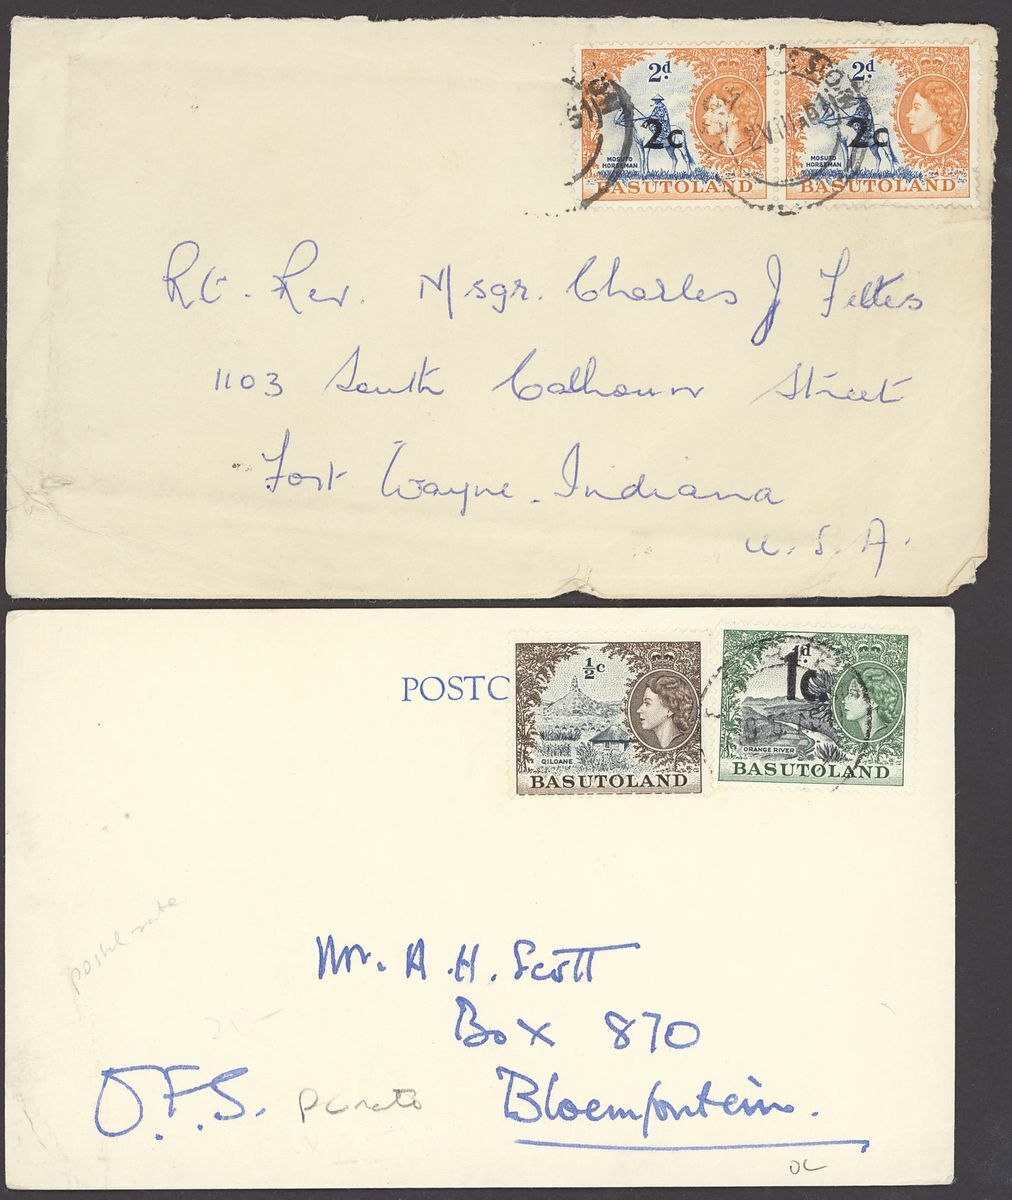 2d 2d
2c 2c
MOSUTO HORSEMAN MOSUTO HORSEMAN
BASUTOLAND BASUTOLAND
Rt. Rev. Msgr. Charles J Feltes
1103 South Calhoun Street
Fort Wayne. Indiana
U.S.A.
POSTC
½c 1d
1c
QILOANE ORANGE RIVER
BASUTOLAND BASUTOLAND
postal rate
Mr. A.H. Scott
Box 870
O.F.S. Bloemfontein.